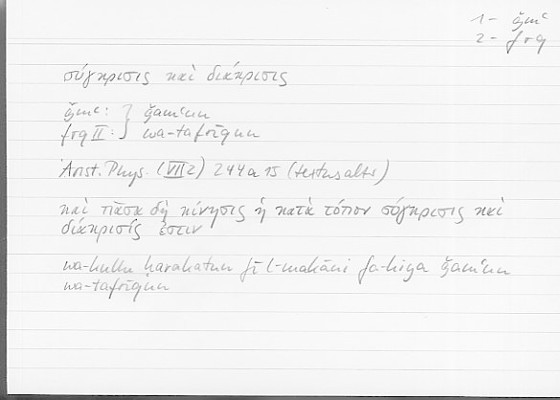 1 - ǧmʿ
2 - frq
σύγκρισις καὶ διάκρισις
ǧmʿ: } ǧamʿun
frq II: } wa-tafrīqun
Arist. Phys. (VII 2) 244a15 (textus alter)
καὶ πᾶσα δὴ κίνησις ἡ κατὰ τόπον σύγκρισις καὶ
διάκρισίς ἐστιν
wa-kullu ḥarakatun fī l-makāni fa-hiya ǧamʿun
wa-tafrīqun